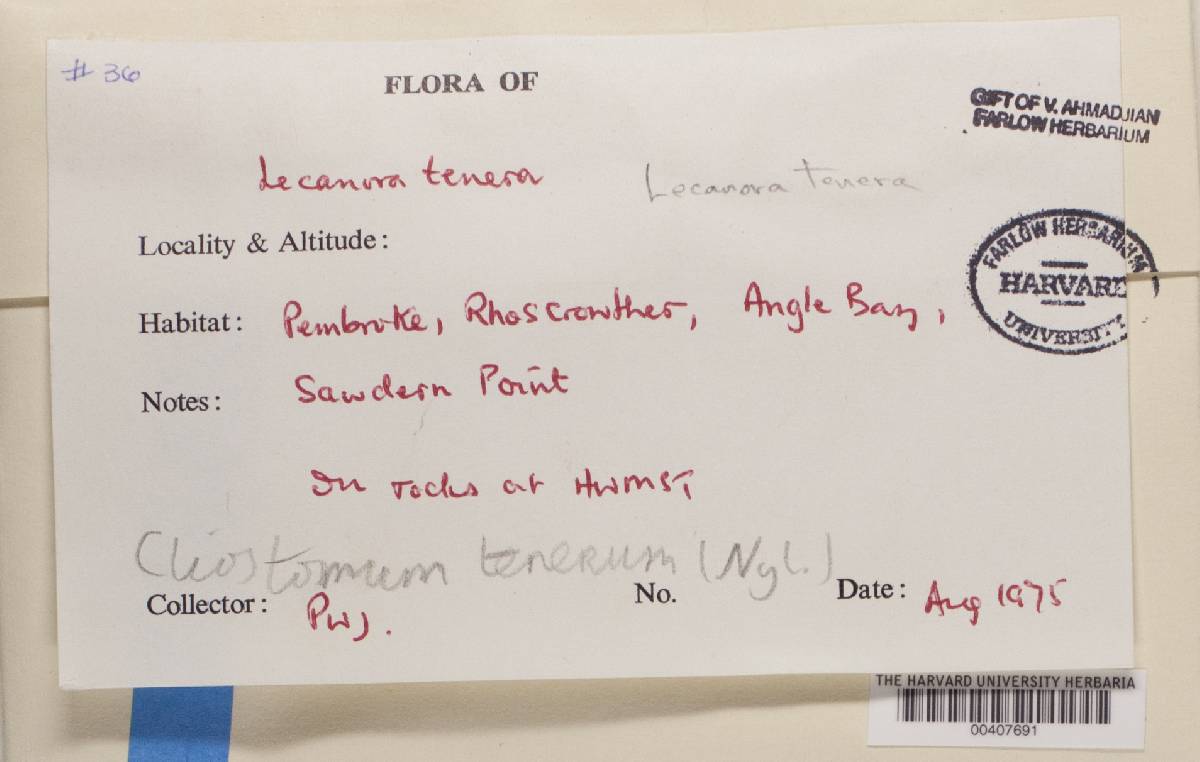 # 36
FLORA OF
GIFT OF V. AHMADJIAN
FARLOW HERBARIUM
Lecanora tenera Lecanora tenera
Locality & Altitude:
FARLOW HERBARIUM
HARVARD
UNIVERSITY
Habitat: Pembroke, Rhoscrowther, Angle Bay,
Notes: Sawdern Point
On rocks at HWMST
Cliostomum tenerum (Nyl.)
Collector: PWJ. No. Date: Aug 1975
THE HARVARD UNIVERSITY HERBARIA
00407691